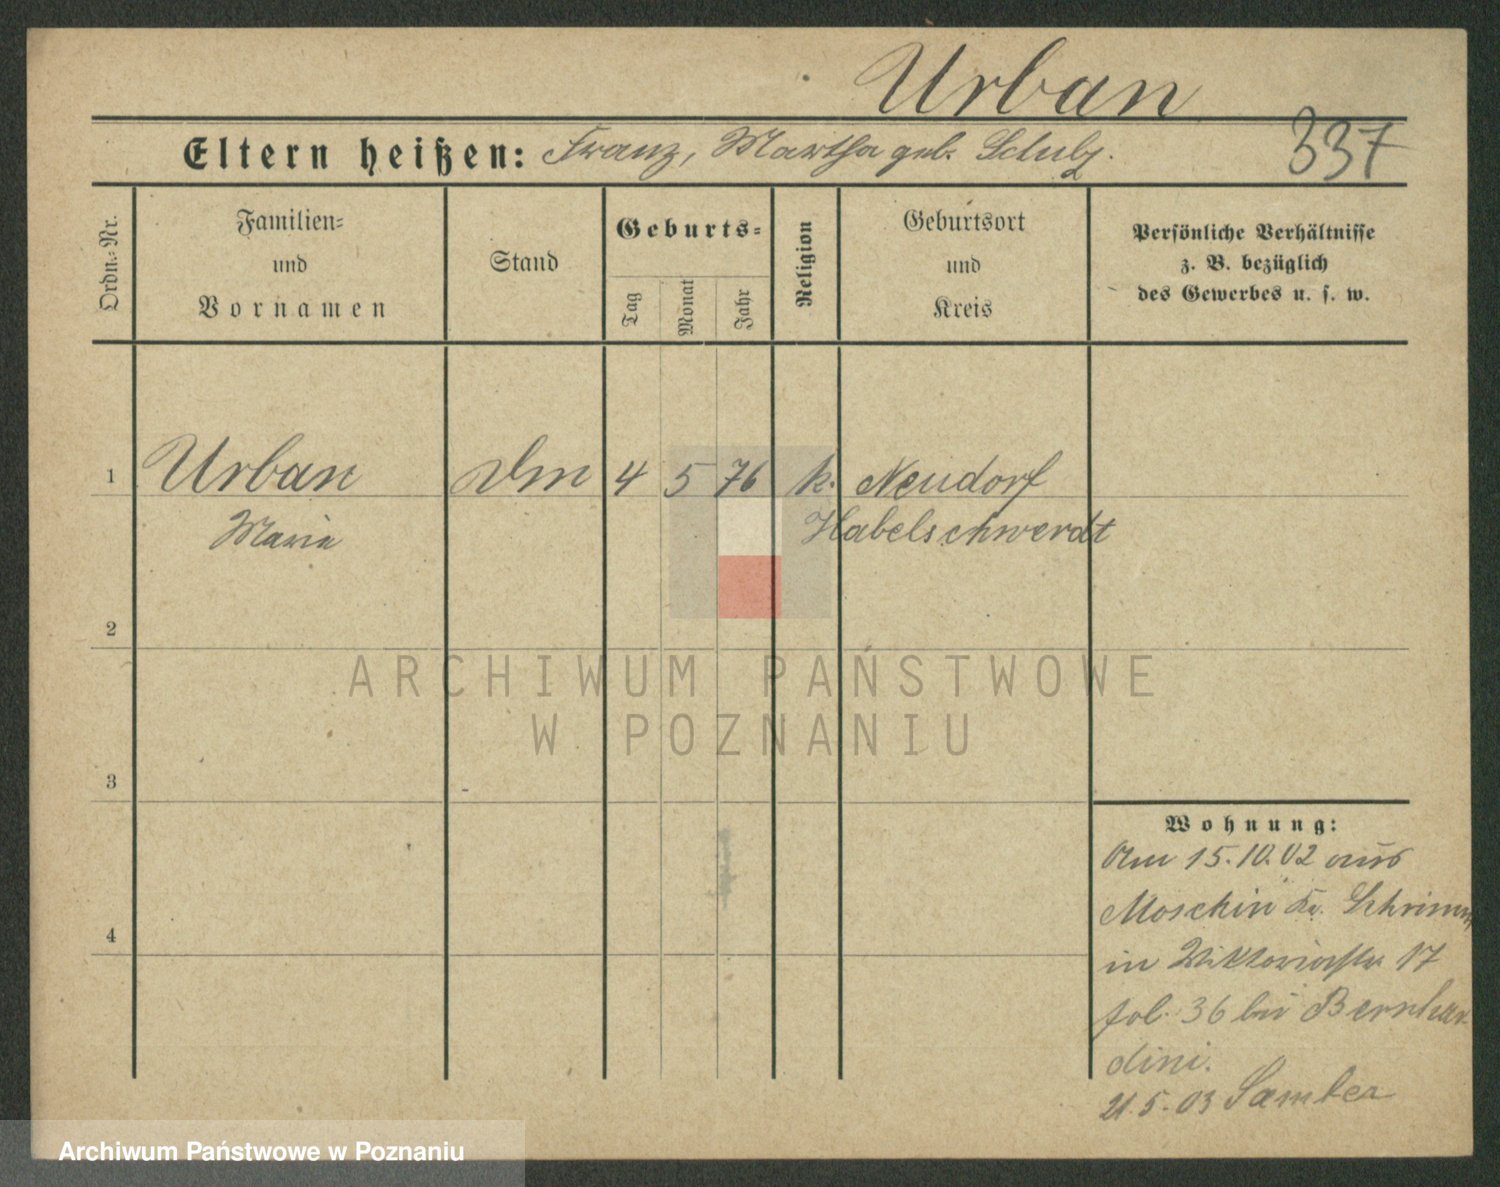 Urban
337
Eltern heißen: Franz, Martha geb. Schulz.
Ordn.-Nr.
Familien- und Vornamen
Stand
Geburts-
Tag
Monat
Jahr
Religion
Geburtsort und Kreis
Persönliche Verhältnisse z. B. bezüglich des Gewerbes u. s. w.
1 Urban 4 5 76 k. Neudorf
Maria Habelschwerdt
2
3
4
Wohnung:
Am 15.10.02 aus
Moschin Kr. Schrimm
in Viktoriastr. 17
fol. 36 bei Bernhar-
dini.
21.5.03 Samter
ARCHIWUM PAŃSTWOWE
W POZNANIU
Archiwum Państwowe w Poznaniu